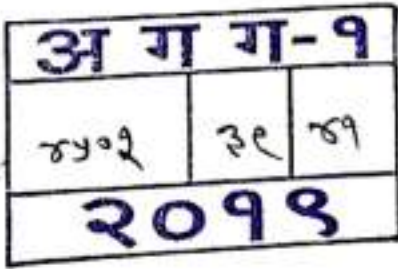 अ ग ग-१
४५०२ ३९ ४१
२०१९